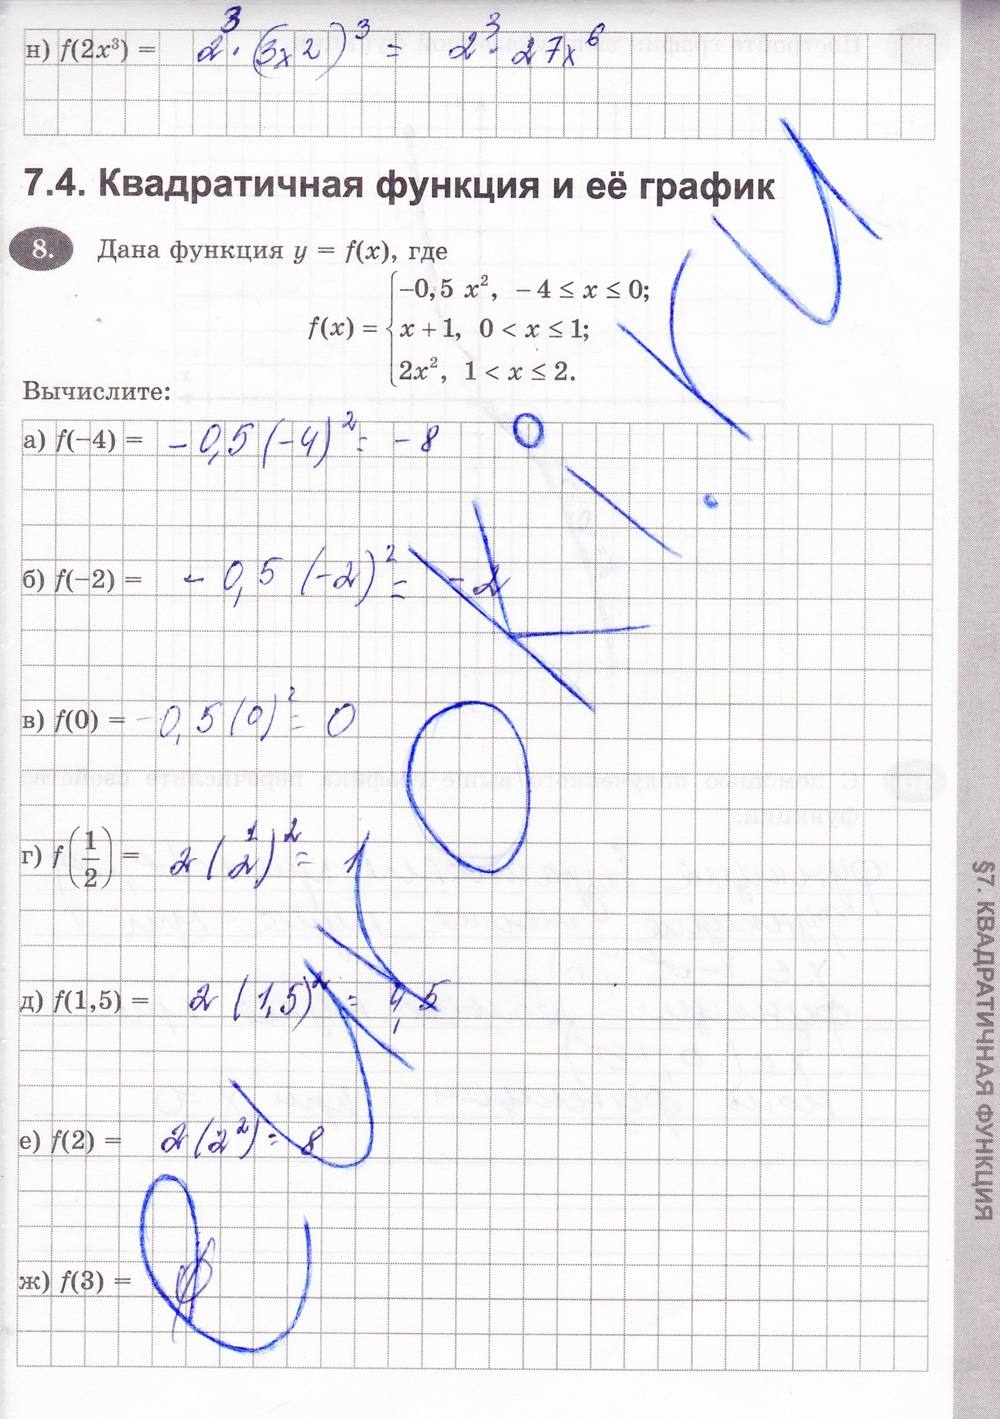 н) f(2x³) = 2³·(3x2)³ = 2³·27x⁶
7.4. Квадратичная функция и её график
8. Дана функция y = f(x), где
−0,5 x², −4 ≤ x ≤ 0;
f(x) = { x + 1, 0 < x ≤ 1;
2x², 1 < x ≤ 2.
Вычислите:
а) f(−4) = −0,5(−4)² = −8
б) f(−2) = −0,5(−2)² = −2
в) f(0) = −0,5(0)² = 0
г) f(1/2) = 2(½)² = 1
д) f(1,5) = 2(1,5)² = 4,5
е) f(2) = 2(2²) = 8
ж) f(3) =
§7. КВАДРАТИЧНАЯ ФУНКЦИЯ